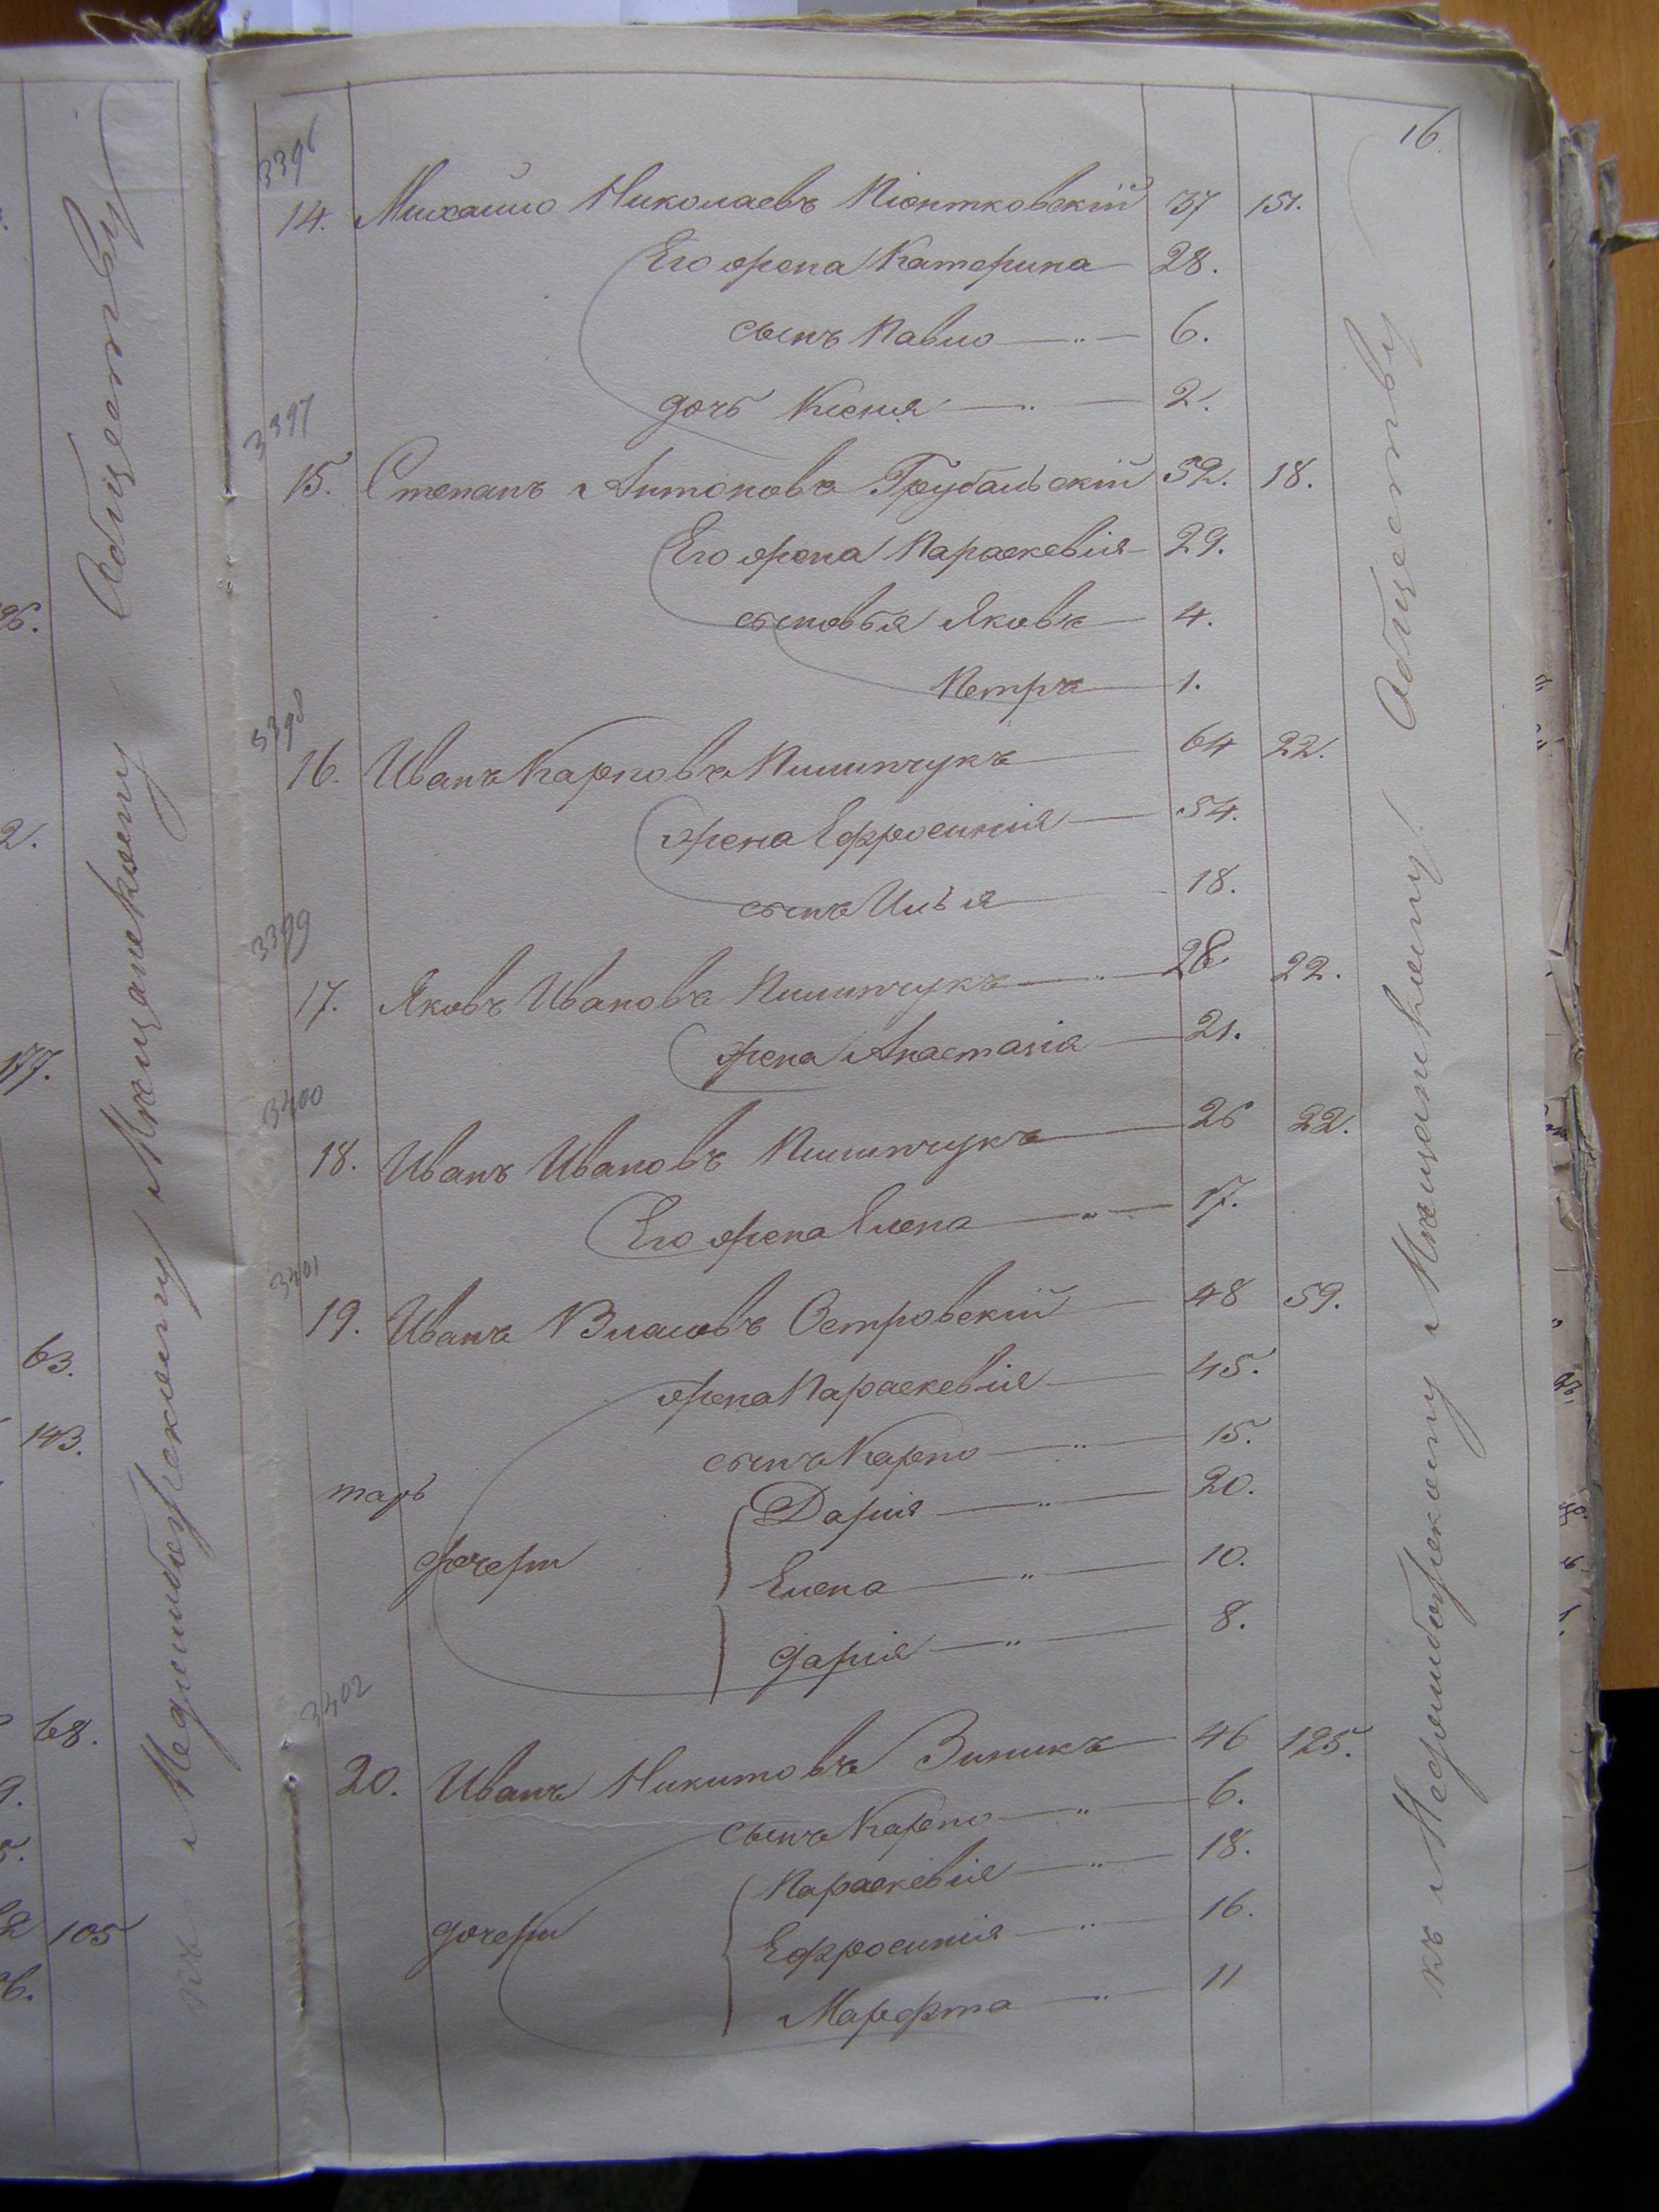 16
3396
14. Михайло Николаевъ Піонтковскій 37 151.
Его жена Катерина 28.
сынъ Павло 6.
дочь Ксенія 2.
3397
15. Степанъ Антоновъ Грубальскій 32. 18.
Его жена Параскевія 29.
сыновья Яковъ 4.
Петръ 1.
3398
16. Иванъ Карповъ Пилипчукъ 64 22.
жена Ефросинія 54.
сынъ Илья 18.
3399
17. Яковъ Ивановъ Пилипчукъ 28 22.
жена Анастасія 21.
3400
18. Иванъ Ивановъ Пилипчукъ 26 22.
Его жена Елена 17.
3401
19. Иванъ Власовъ Островскій 48 59.
жена Параскевія 45.
сынъ Карпо 15.
Дарія 20.
дочери
Елена 10.
Дарія 8.
3402
20. Иванъ Никитовъ Зиникъ 46 125.
сынъ Карпо 6.
Параскевія 18.
дочери
Ефросинія 16.
Марфта 11
къ Меджибожскому Мѣщанскому Обществу
къ Меджибожскому Мѣщанскому Обществу
96.
2.
177.
63.
143.
68.
105